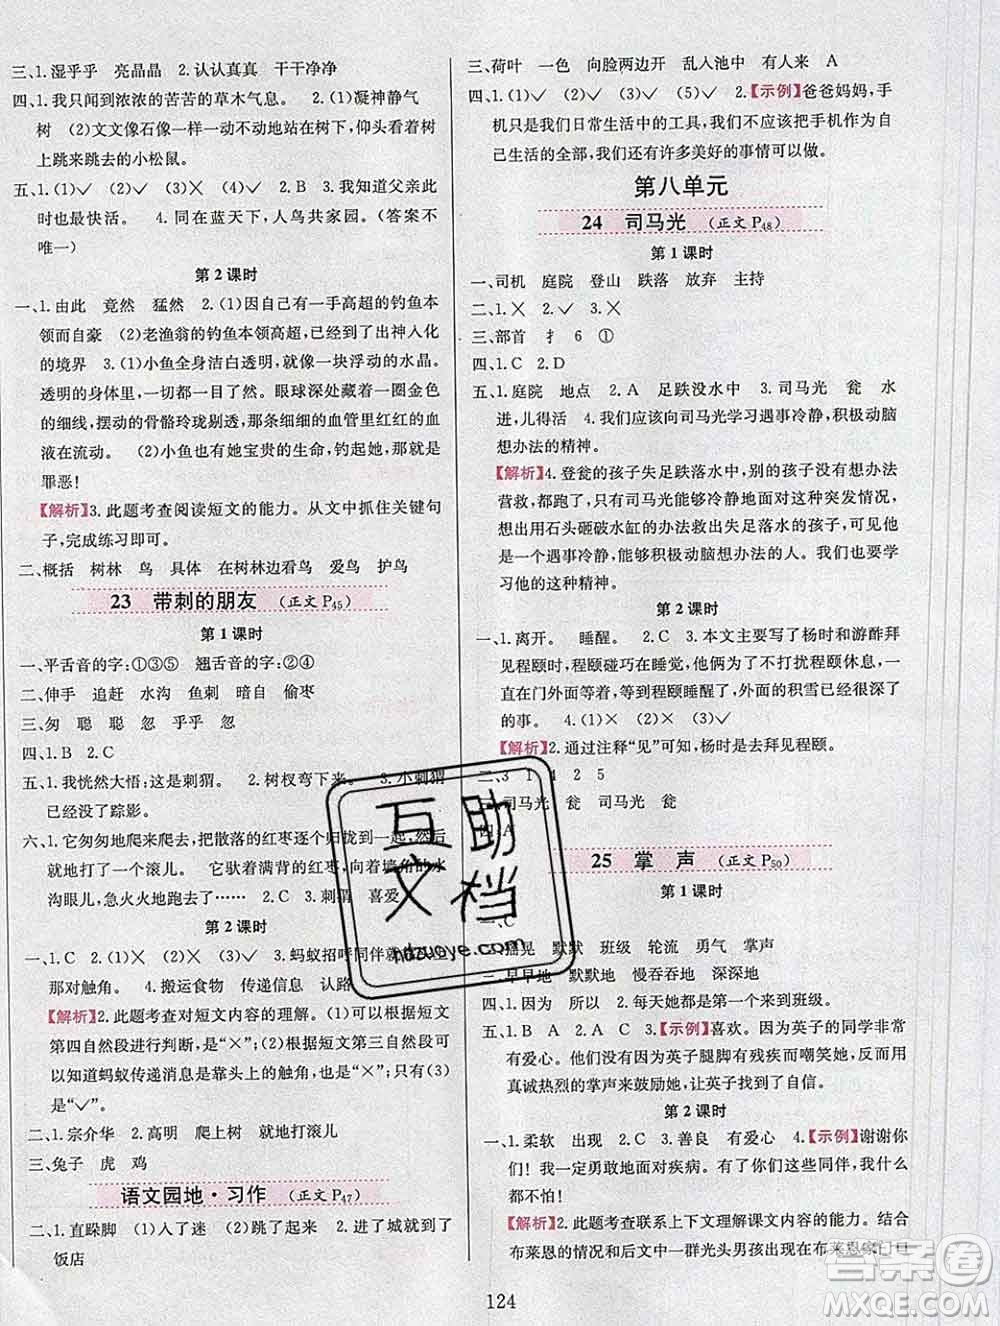 三、1.湿乎乎 亮晶晶 2.认认真真 干干净净
四、1.我只闻到浓浓的苦苦的草木气息。 2.(1)凝神静气
树 (2)文文像石像一样一动不动地站在树下,仰头看树
上跳来跳去的小松鼠。
五、1.(1)✓ (2)✓ (3)✕ (4)✓ 2.B 3.我知道父亲此
时也最快活。 4.同在蓝天下,人鸟共家园。(答案不
唯一)
第2课时
一、1.由此 竟然 猛然 2.(1)因自己有一手高超的钓鱼本
领而自豪 (2)老渔翁的钓鱼本领高超,已经到了出神入化
的境界 3.(1)小鱼全身洁白透明,就像一块浮动的水晶。
透明的身体里,一切都一目了然。眼球深处藏着一圈金色
的细线,摆动的骨骼玲珑剔透,那条细细的血管里红红的血
液在流动。 (2)小鱼也有她宝贵的生命,钓起她,就是
罪恶!
【解析】3.此题考查阅读短文的能力。从文中抓住关键句
子,完成练习即可。
二、概括 树林 鸟 具体 在树林边看鸟 爱鸟 护鸟
23 带刺的朋友 (正文P45)
第1课时
一、平舌音的字:①③⑤ 翘舌音的字:②④
二、伸手 追赶 水沟 鱼刺 暗自 偷枣
三、匆 聪 聪 忽 乎乎 忽
四、1.B 2.C
五、1.我恍然大悟:这是刺猬。 2.树杈弯下来。 3.小刺猬
已经没了踪影。
六、1.它匆匆地爬来爬去,把散落的红枣逐个归拢到一起,然后
就地打了一个滚儿。 它驮着满背的红枣,向着墙角的水
沟眼儿,急火火地跑去了…… 2.B 3.刺猬 喜爱
第2课时
一、1.C 2.(1)✕ (2)✕ (3)✓ 3.蚂蚁招呼同伴就
那对触角。 4.搬运食物 传递信息 认路
【解析】2.此题考查对短文内容的理解。(1)可以根据短文
第四自然段进行判断,是“✕”;(2)根据短文第三自然段可
以知道蚂蚁传递消息是靠头上的触角,是“✕”;只有(3)
是“✓”。
二、1.宗介华 2.高明 爬上树 就地打滚儿
三、兔子 虎 鸡
语文园地·习作 (正文P47)
二、1.直跺脚 (1)入了迷 (2)跳了起来 2.进了城就到了
饭店
三、荷叶 一色 向脸两边开 乱入池中 有人来 A
四、1.(1)✓ (2)✓ (3)✓ (5)✓ 2.【示例】爸爸妈妈,手
机只是我们日常生活中的工具,我们不应该把手机作为自
己生活的全部,我们还有许多美好的事情可以做。
第八单元
24 司马光 (正文P48)
第1课时
一、司机 庭院 登山 跌落 放弃 主持
二、1.✕ 2.✓ 3.✕
三、部首 扌 6 ①
四、1.C 2.D
五、1.庭院 地点 2.A 足跌没水中 3.司马光 瓮 水
迸,儿得活 4.我们应该向司马光学习遇事冷静,积极动脑
想办法的精神。
【解析】4.登瓮的孩子失足跌落水中,别的孩子没有想办法
营救,都跑了,只有司马光能够冷静地面对这种突发情况,
想出用石头砸破水缸的办法救出失足落水的孩子,可见他
是一个遇事冷静、能够积极动脑想办法的人。我们要学
习他的这种精神。
第2课时
一、1.离开。 睡醒。 2.C 3.本文主要写了杨时和游酢拜
见程颐时,程颐碰巧在睡觉,他们为了不打扰程颐休息,一
直在门外面等到程颐睡醒了,外面的积雪已经很深了
的事。 4.(1)✕ (2)✕ (3)✓
【解析】2.通过注释“见”可知,杨时是去拜见程颐。
二、3 1 4 2 5
三、司马光 瓮 司马光 瓮
四、A
25 掌声 (正文P50)
第1课时
一、C
二、摇晃 默默 班级 轮流 勇气 掌声
三、早早地 默默地 慢吞吞地 深深地
四、1.因为 所以 2.每天她都是第一个来到班级。
五、1.B A 2.A C 3.【示例】喜欢。因为英子的同学非常
有爱心。他们没有因为英子腿脚有残疾而嘲笑她,反而用
真诚热烈的掌声鼓励她,让英子找到了自信。
第2课时
一、1.柔软 出现 2.C 3.善良 有爱心 4.【示例】谢谢你
们! 我一定勇敢地面对疾病。有你们这些同伴,我一点也
不孤独!
【解析】2.此题考查联系上下文理解课文内容的能力。结合
布莱恩的情况和后文中一群光头男孩出现在布莱恩家门口
124
互助文档
hdzuoye.com
答案圈
MXQE.COM